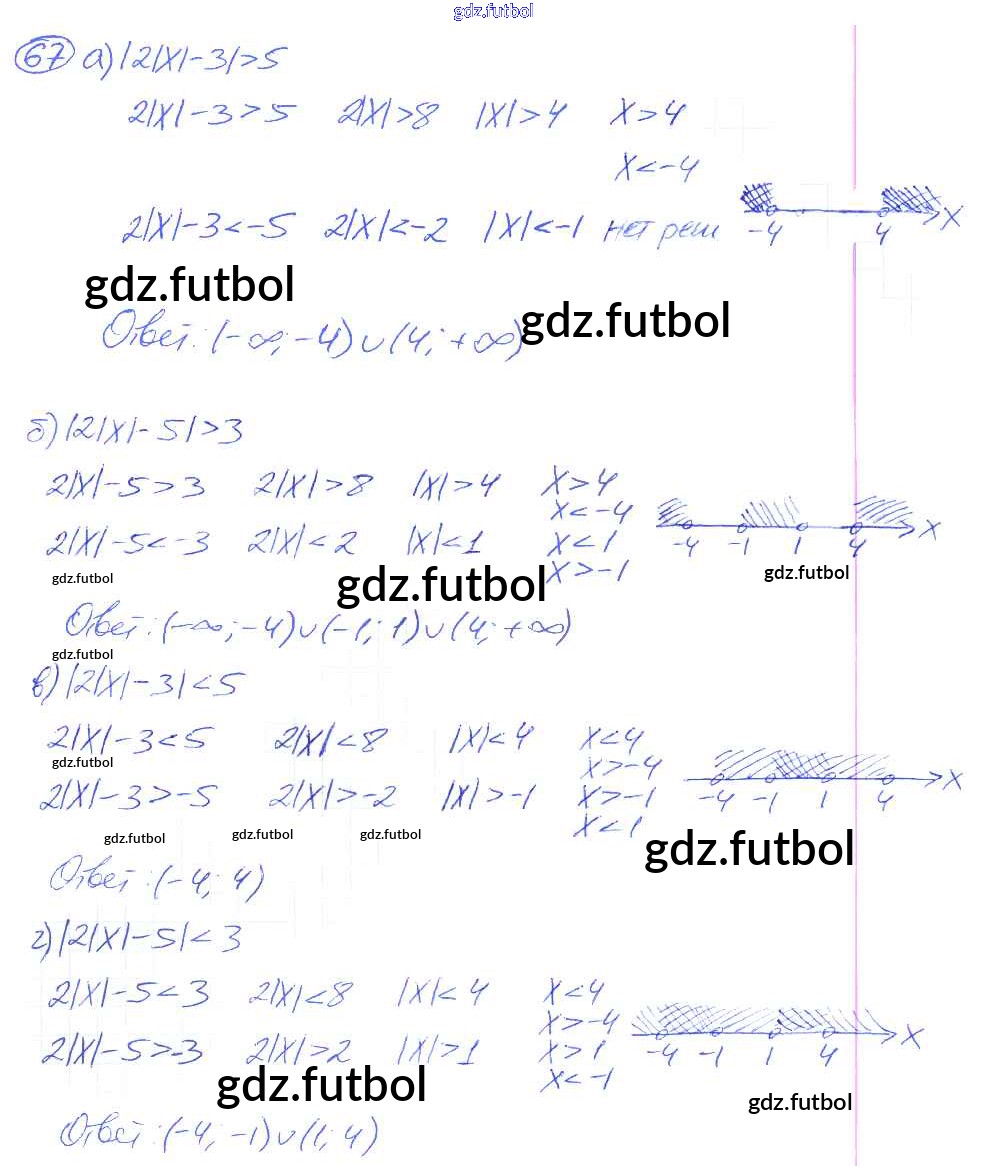 gdz.futbol
67 а) |2|x|-3|>5
2|x|-3>5 2|x|>8 |x|>4 x>4
x<-4
2|x|-3<-5 2|x|<-2 |x|<-1 нет реш
-4 4 x
gdz.futbol
gdz.futbol
Ответ: (-∞; -4)∪(4; +∞)
б) |2|x|-5|>3
2|x|-5>3 2|x|>8 |x|>4 x>4
x<-4
-4 -1 1 4 x
2|x|-5<-3 2|x|<2 |x|<1 x<1
x>-1
gdz.futbol gdz.futbol gdz.futbol
Ответ: (-∞; -4)∪(-1; 1)∪(4; +∞)
gdz.futbol
в) |2|x|-3|<5
2|x|-3<5 2|x|<8 |x|<4 x<4
gdz.futbol
x>-4
-4 -1 1 4 x
2|x|-3>-5 2|x|>-2 |x|>-1 x>-1
x<1
gdz.futbol gdz.futbol gdz.futbol gdz.futbol
Ответ: (-4; 4)
г) |2|x|-5|<3
2|x|-5<3 2|x|<8 |x|<4 x<4
x>-4
-4 -1 1 4 x
2|x|-5>-3 2|x|>2 |x|>1 x>1
x<-1
gdz.futbol gdz.futbol
Ответ: (-4; -1)∪(1; 4)